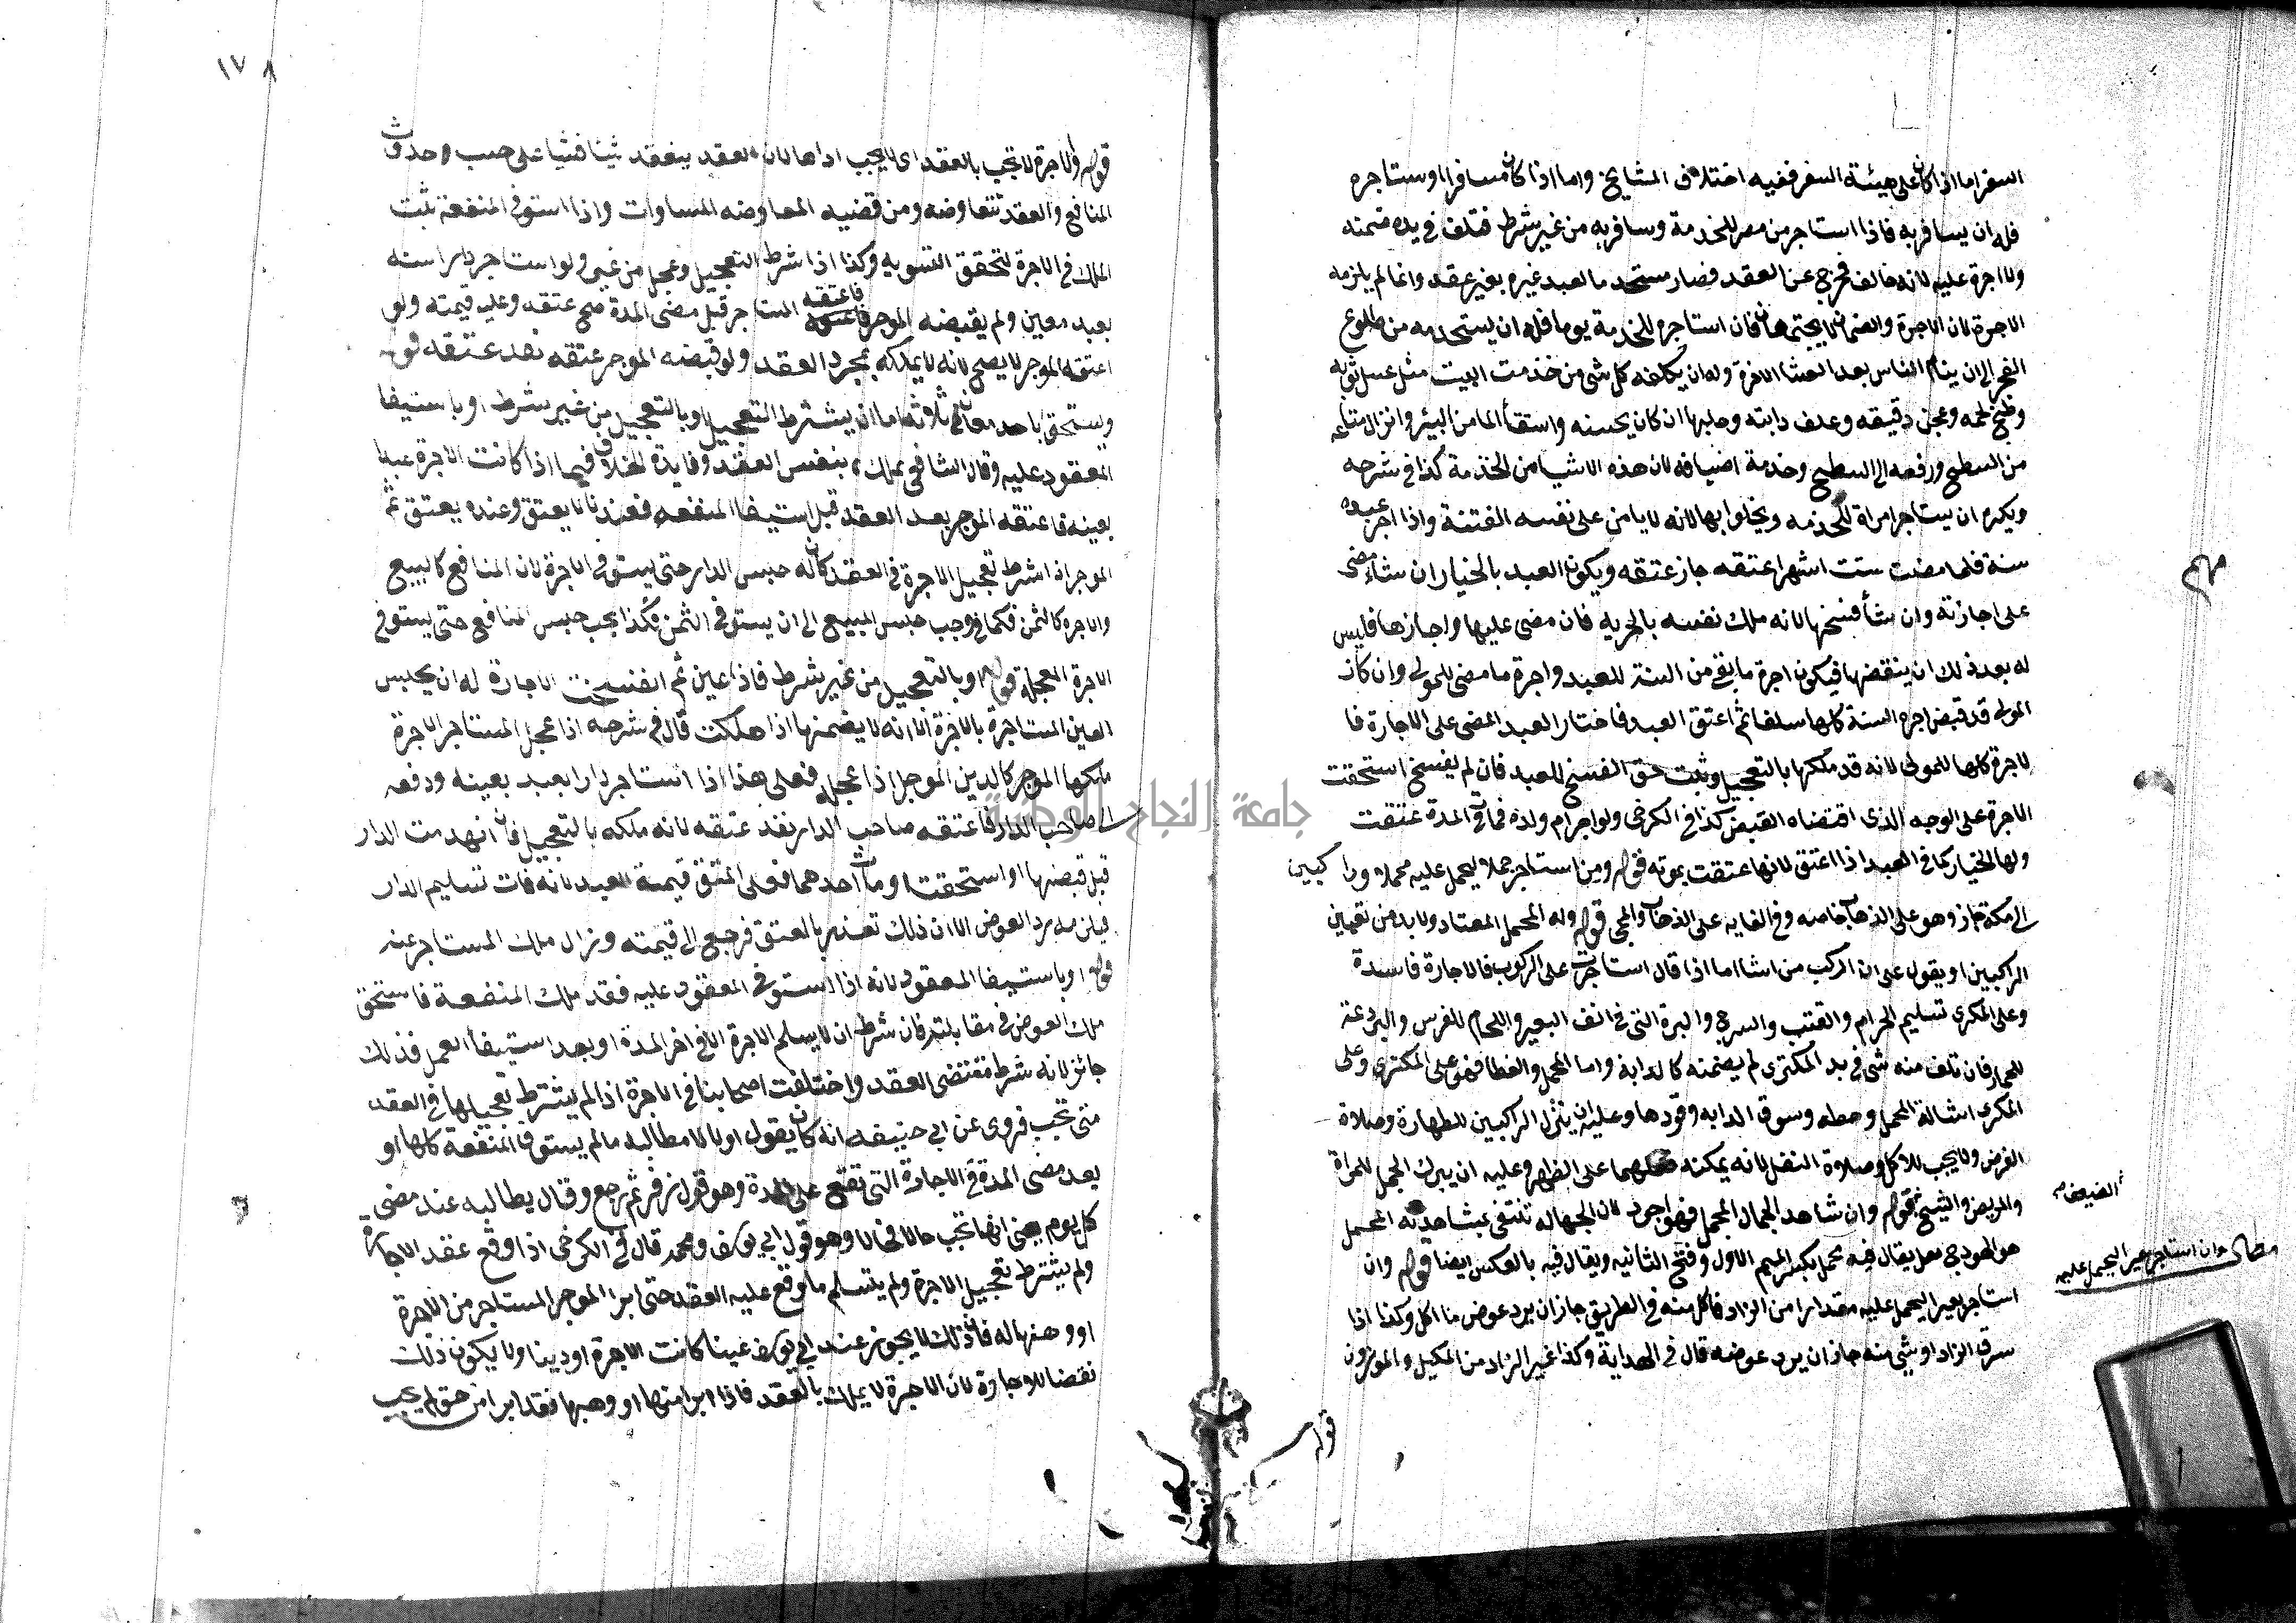 السفر اما اذا كان على هيئة السفر ففيه اختلاف المشايخ واما اذا كان مسافرا واستاجره
فله ان يسافر به فاذا استاجر من مصر للخدمة وسافر به من غير شرط فتلف في يده ضمنه
ولا اجرة عليه لانه خالف فخرج عن العقد فصار مستخدما لعبد غيره بغير عقد وانما لم يلزمه
الاجرة لان الاجرة والضمان لا يجتمعان فان استاجره للخدمة يوما فله ان يستخدمه من طلوع
الفجر الى ان ينام الناس بعد العشا الاخرة وله ان يكلفه كل شي من خذمت البيت مثل غسل ثوبه
وطبخ لحمه وعجن دقيقه وعلف دابته وحلبها ان كان يحسنه واستقأ الما من البير وانزال متاعه
من السطح ورفعه الى السطح وخدمة اضيافه لان هذه الاشيا من الخذمة كذا في شرحه
ويكره ان يستاجر امراة للخدمه ويخلوا بها لانه لا يامن على نفسه الفتنة واذا اجر عبده
سنة فلما مضت ستت اشهر اعتقه جاز عتقه ويكون العبد بالخيار ان شاء مضى
على اجازته وان شأ فسخها لانه ملك نفسه بالحريه فان مضى عليها واجازها فليس
له بعد ذلك ان ينقضها فيكون اجرة ما بقي من السنة للعبد واجرة ما مضى للمولى وان كان
المولى قد قبض اجره السنة كلها سلفا ثم اعتق العبد فاختار العبد المضى على الاجارة فا
لاجرة كلها للمولى لانه قد ملكها بالتعجيل وثبت حق الفسخ للعبد فان لم يفسخ استحقت
الاجرة على الوجه الذى اقتضاه القبض كذا في الكرخي ولو اجر ام ولده فمات في المدة عتقت
ولها الخيار كما في العبد اذا اعتق لانها عتقت بموته قوله ومن استاجر جملا ليحمل عليه محملا وراكبين
الى مكة جاز وهو على الذهاب خاصه وفي الفايه على الذهاب والمجى قوله وله المحمل المعتاد ولا بد من تعيين
الراكبين او يقول على ان اركب من اشا اما اذا قال استاجرت على الركوب فالاجارة فاسدة
وعلى المكري تسليم الحزام والقتب والسرج والبرة التى في انف البعير واللجام للفرس والبردعة
للحمار فان تلف منه شي في يد المكترى لم يضمنه كالدابة واما المحمل والغطا فهو على المكترى وعلى
المكرى اشالة المحمل وحطه وسوق الدابه وقودها وعليه ان ينزل الراكبين للطهارة وصلاة
الفرض ولا يجب للاكل وصلاة النفل لانه يمكنه فعلهما على الظهر وعليه ان يبرك الجمل للمراة
والمريض والشيخ قوله وان شاهد الجمال المحمل فهو اجود لان الجهاله تنتفي بمشاهدته المحمل
الضعيف صح
هو الهودج يقال فيه محمل بكسر الميم الاول وفتح الثانيه ويقال فيه بالعكس ايضا قوله وان
مطلب وان استاجر بعيرا ليحمل عليه
استاجر بعيرا ليحمل عليه مقدارا من الزاد فاكل منه في الطريق جاز ان يرد عوض ما اكل وكذا اذا
سرق الزاد او شي منه جاز ان يرد عوضه قال في الهداية وكذا غير الزاد من المكيل والموزون
قوله
١٧٨
قوله والاجرة لا تجب بالعقد اى لا يجب اداها لان العقد ينعقد شيئا فشيا على حسب حدوث
المنافع والعقد معاوضه ومن قضيه المعاوضه المساوات واذا استوفى المنفعة ثبت
الملك في الاجرة لتحقق التسويه وكذا اذا شرط التعجيل وعجل من غير ولو استاجر دارا سنه
بعبد معين ولم يقبضه الموجر فاعتقه المستاجر قبل مضى المدة صح عتقه وعليه قيمته ولو
اعتقه الموجر لا يصح لانه لا يملكه بمجرد العقد ولو قبضه الموجر عتقه نفد عتقه قوله
وتستحق باحد معانى ثلاثه اما ان يشترط التعجيل او بالتعجيل من غير شرط او باستيفا
المعقود عليه وقال الشافعي يملك بنفس العقد وفايدة الخلاف فيما اذا كانت الاجرة عبدا
بعينه فاعتقه الموجر بعد العقد قبل استيفا المنفعه فعندنا لا يعتق وعنده يعتق ثم
الموجر اذا شرط تعجيل الاجرة في العقد كان له حبس الدار حتى يستوفى الاجرة لان المنافع كالبيع
والاجره كالثمن فكما وجب حبس المبيع الى ان يستوفى الثمن فكذا يجب حبس المنافع حتى يستوفى
الاجرة المعجله قوله او بالتعجيل من غير شرط فاذا عين ثم انفسخت الاجارة له ان يحبس
العين المستاجرة بالاجرة الا انه لا يضمنها اذا هلكت قال في شرحه اذا عجل المستاجر الاجرة
ملكها الموجر كالدين الموجل اذا عجل فعلى هذا اذا استاجر دارا بعبد بعينه ودفعه
الى صاحب الدار فاعتقه صاحب الدار نفد عتقه لانه ملكه بالتعجيل فان انهدمت الدار
قبل قبضها او استحقت او مات احدهما فعلى المعتق قيمة العبد لانه فات تسليم الدار
فيلزمه رد العوض الا ان ذلك تعذر بالعتق فرجع الى قيمته وزال ملك المستاجر عنه
قوله او باستيفا المعقود لانه اذا استوفى المعقود عليه فقد ملك المنفعة فاستحق
ملك العوض في مقابلته فان شرط ان لا يسلم الاجرة الا في اخر المدة او بعد استيفأ العمل فذلك
جائز لانه شرط مقتضى العقد واختلفت اصحابنا في الاجرة اذا لم يشترط تعجيلها في العقد
متى تجب فروى عن ابي حنيفه انه كان يقول اولا لا مطالبه ما لم يستوفى المنفعة كلها او
بعد مضى المدة في الاجارة التى تقع على المدة وهو قول زفر ثم رجع وقال يطالبه عند مضى
كل يوم يعنى انها تجب حالا فحالا وهو قول ابي يوسف ومحمد قال في الكرخى اذا وقع عقد الاجارة
ولم يشترط تعجيل الاجرة ولم يتسلم ما وقع عليه العقد حتى ابرا الموجر المستاجر من الاجرة
او وهبها له فان ذلك لا يجوز عند ابي يوسف عينا كانت الاجرة او دينا ولا يكون ذلك
نقضا للاجارة لان الاجرة لا يملك بالعقد فاذا ابرا منها او وهبها فقد ابرا من حق لم يجب
جامعة النجاح الوطنية